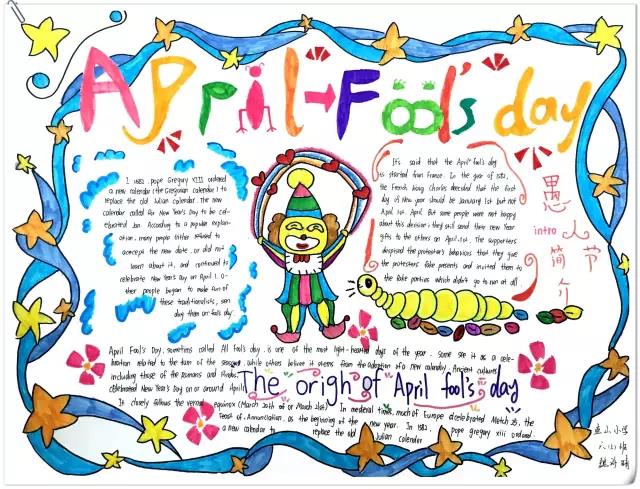 April Fool's day
I 1582, pope Gregory XIII ordered
a new calendar (the Gregorian calendar) to
replace the old Julian calendar. The new
calendar called for New Year's Day to be cel-
ebrated Jan. According to a popular explan-
ation, many people either refused to
accept the new date, or did not
learn about it, and continued to
celebrate New Year's Day on April 1. O-
ther people began to make fun of
these traditionalists, sen
ding them on fool's day.
It's said that the April fool's day
is started from France. In the year of 1582,
the French king Charles decided that the first
day of New year should be January 1st but not
April 1st. But some people were not happy
about this decision; they still send their New Year
gifts to the others on April.1st. The supporters
despised the protestors' behaviors that they give
the protesters fake presents and invited them to
the fake parties which didn't go to run at all.
愚
intro 人
简 节
介
April Fool's Day, sometimes called All fool's day, is one of the most light-hearted days of the year. Some see it as a cele-
bration related to the turn of the seasons, while others believe it stems from the adoption of a new calendar. Ancient cultures
including those of the Romans and Hindus
celebrated New Year's Day on or around April
The origin of April fool's day
It closely follows the vernal equinox (March 20th or March 21st). In medieval times, much of Europe celebrated March 25, the
Feast of Annunciation, as the beginning of the new year. In 1582, pope gregory xiii ordered
a new calendar to replace the old Julian calendar
小学
班